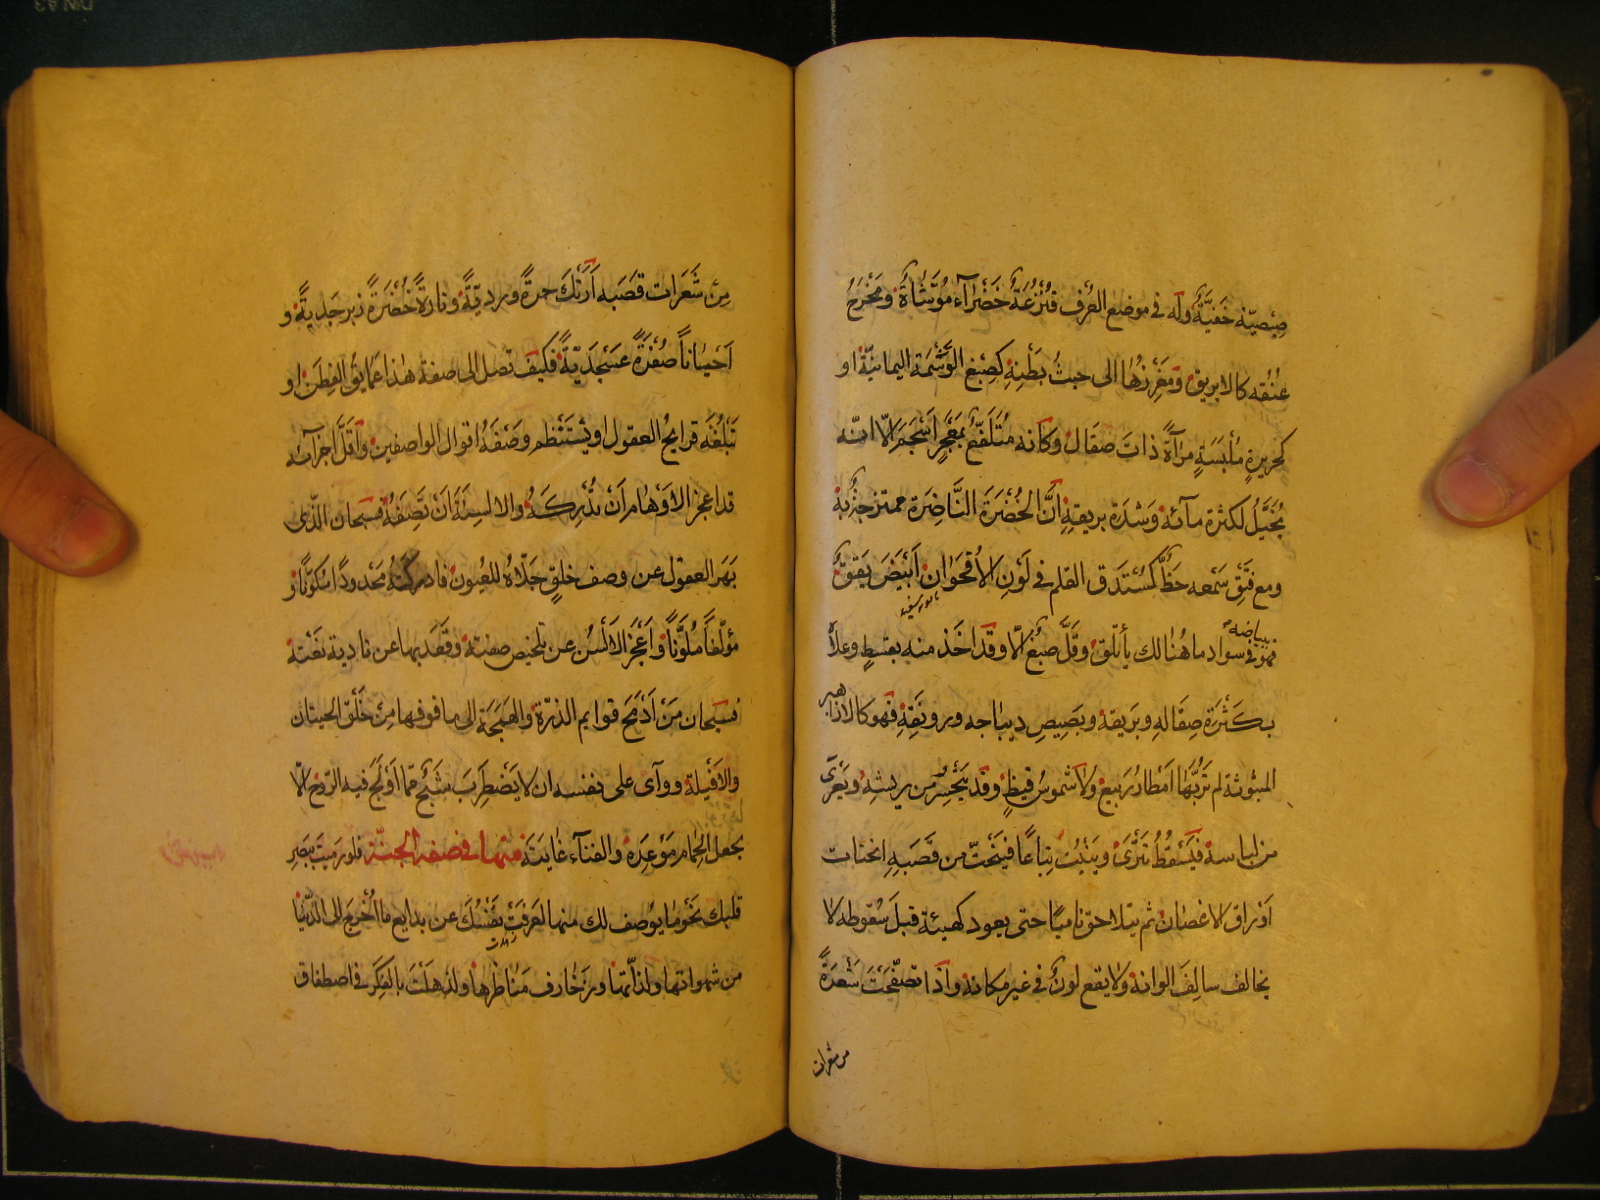 صِيصِيَّة خَفِيَّةٌ وله في موضع العُرْفِ قُنْزُعَةٌ خَضْرَآء مُوَشّاةٌ ومَخْرَجُ
عُنُقه كالابريق ومَغْرِزُها الى حيثُ بَطْنِهِ كصِبْغ الوَسْمَة اليمانيّة او
كحريرةٍ مُلْبَسَةٍ مرآةً ذاتَ صقال وكانه مُتَلَفّعٌ بمَعْجَرٍ اَسْحَمَ الّا انه
يُخَيَّلُ لكثرة مآئه وشدة بريقهِ انَّ الخُضْرَةَ النَّاضِرَة ممتزجَةٌ به
ومع فَتْقِ سَمْعه خَطٌّ كمُسْتَدَق القلم في لَوْنِ الاُقْحُوَان اَبْيَضَ يَقَقٌ
فهو ببياضه في سواد ما هُنالك يأتلق وقَلَّ صِبْغٌ الّا وقد اخَذ منه بقسطٍ وعلاه
بكَثْرَة صِقَالهِ وبَريقه وبَصِيصِ ديباجه ورونَقِهِ فهو كالازاهير
المبثوثة لم تُرَبِّهَا اَمْطارُ رَبيع ولا شموسُ قيظٍ وقد يَتَحَسَّرُ من ريشه ويَعْرَى
من لباسه فيَسْقُطُ تَتْرَى ويَنْبُت تِباعًا فيَنْحَتّ من قَصَبهِ انحتات
اَوْراق الاغصان ثم يتلاحق ناميًا حتى يعود كهيئة قبلَ سُقوطه لا
يخالف سالِفَ الوانه ولا يقع لونٌ في غير مكانه واذا تصفّحْتَ شَعْرَةً
من شعرات
مِن شَعَرات قصَبه اَرَتْكَ حمرةً ورديّةً وتارةً خُضْرَةً زبرجَديةً و
اَحْيٰانًا صُفْرَةً عَسْجَديّةً فكيف تصل الى صفة هٰذا عَمايقُ الفِطَن او
تَبْلُغُه قرايحُ العقول او يَسْتَنْظم وَصْفَهُ اقوال الواصفين واَقَلَّ اجزآئه
قد اعجز الاَوْهٰامَ اَنْ تُدْرِكَهُ والالسِنَةَ اَنْ تَصِفَهُ فسبحان الّذى
بَهَر العقول عن وصف خلقٍ جَلّاهُ للعُيون فادركَتْهُ مَحْدودًا مُكَوَّنًا و
مؤلّفًا مُلَوَّنًا وَاَعْجَزَ الاَلْسُنَ عن تلخيص صفته وقَعَد بها عن تادية نَعْته
فسبحان مَنْ اَدْمَجَ قوايم الذرّة والهَمَجَة الى ما فوقها مِنْ خَلْق الحيتان
والاَفْيلة ووآى على نفسه ان لا يَضْطرَبَ شَبَحٌ ممّا اَوْلَجَ فيه الرّوح الّا
وجعل الحِمامَ مَوْعِدَهُ والفنآء غايَتَهُ منها في صفة الجنّة فلو رَميتَ ببَصَرِ
قلبك نَحْوَ ما يوُصف لك منها لعَزفَتْ نَفْسُكَ عن بدايع ما اُخْرِجَ الى الدّنيا
من شهواتها ولذّاتها وزَخارف مَناظرها ولذهَلْتَ بالفِكَر في اصطفاق